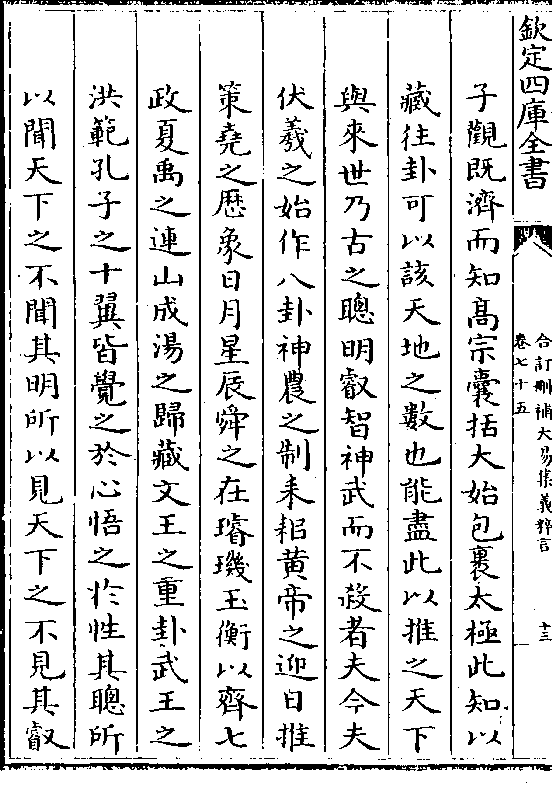 欽定四庫全書
合訂刪補大易集義粹言
卷七十五
十三
子觀既濟而知高宗囊括大始包裹太極此知以
藏往卦可以該天地之數也能盡此以推之天下
與來世乃古之聰明叡智神武而不殺者夫今夫
伏羲之始作八卦神農之制耒耜黄帝之迎日推
策堯之厯象日月星辰舜之在璿璣玉衡以齊七
政夏禹之連山成湯之歸藏文王之重卦武王之
洪範孔子之十翼皆覺之於心悟之於性其聰所
以聞天下之不聞其明所以見天下之不見其叡